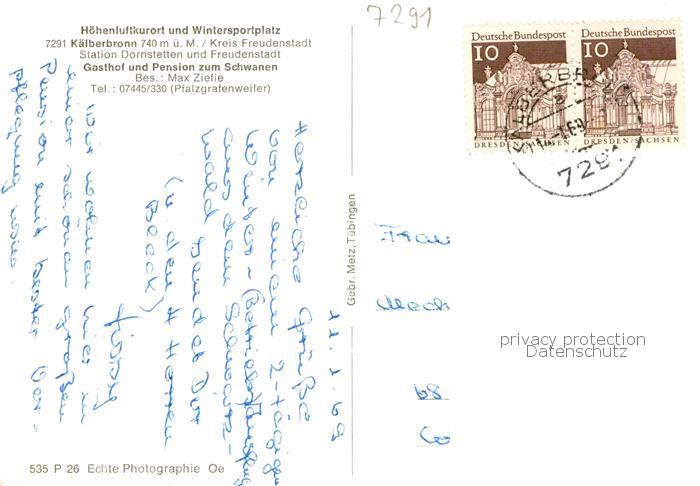 Höhenluftkurort und Wintersportplatz
7291 Kälberbronn 740 m ü. M. / Kreis Freudenstadt
Station Dornstetten und Freudenstadt
Gasthof und Pension zum Schwanen
Bes.: Max Ziefle
Tel.: 07445/330 (Pfalzgrafenweiler)
7291
Deutsche Bundespost
10
DRESDEN/SACHSEN
Deutsche Bundespost
10
DRESDEN/SACHSEN
7291
11.1.69
Herzliche Grüße
von einem 2-tägigen
Winter-(Betriebs)ausflug
aus dem Schwarz-
wald sendet Dir
(u. den Herren
Wir wohnen hier in
einer schönen großen
Pension mit bester Ver-
pflegung usw.
Gebr. Metz, Tübingen
Frau
Mech
68
privacy protection
Datenschutz
535 P 26 Echte Photographie Oe